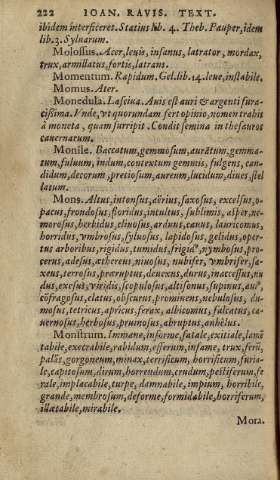 222 IOAN. RAVIS. TEXT.
ibidem interficeret. Statius lib. 4. Theb. Pauper, idem
lib. 3. Syluarum.
Molossus. Acer, leuis, insanus, latrator, mordax,
trux, armillatus, fortis, latrans.
Momentum. Rapidum. Gel. lib. 14. leue, instabile.
Momus. Ater.
Monedula. Lasciua. Auis est auri & argenti fura-
cissima. Vnde, vt quorundam fert opinio, nomen trahit
à moneta, quam surripit. Condit semina in thesauros
cauernarum.
Monile. Baccatum, gemmosum, aurâtum, gemma-
tum, fuluum, indum, contextum gemmis, fulgens, can-
didum, decorum, pretiosum, aureum, lucidum, diues, stel
latum.
Mons. Altus, intensus, aërius, saxosus, excelsus, o-
pacus, frondosus, floridus, intultus, sublimis, asper, ne-
morosus, herbidus, cliuosus, arduus, canus, lauricomus,
horridus, vmbrosus, syluosus, lapidosus, gelidus, oper-
tus arboribus, rigidus, tumidus, frigidus, nymbosus, pro-
cerus, adesus, æthereus, niuosus, nubifer, vmbrifer, sa-
xeus, terrosus, præruptus, deuexus, durus, inaccessus, nu
dus, exesus, viridis, scopulosus, altisonus, supinus, auius,
cōfragosus, elatus, obscurus, prominens, nebulosus, du-
mosus, tetricus, apricus, ferax, albicomus, falcatus, ca-
uernosus, herbosus, prumosus, abruptus, anhelus.
Monstrum. Immane, informe, fatale, exitiale, lamē
tabile, execrabile, rabidum, efferum, infame, trux, ferū,
palās, gorgoneum, minax, terrificum, horrificum, furia-
le, capitosum, dirum, horrendum, crudum, pestiferum, fe
rale, implacabile, turpe, damnabile, impium, horribile,
grande, membrosum, deforme, formidabile, horriferum,
illætabile, mirabile.
Mora.